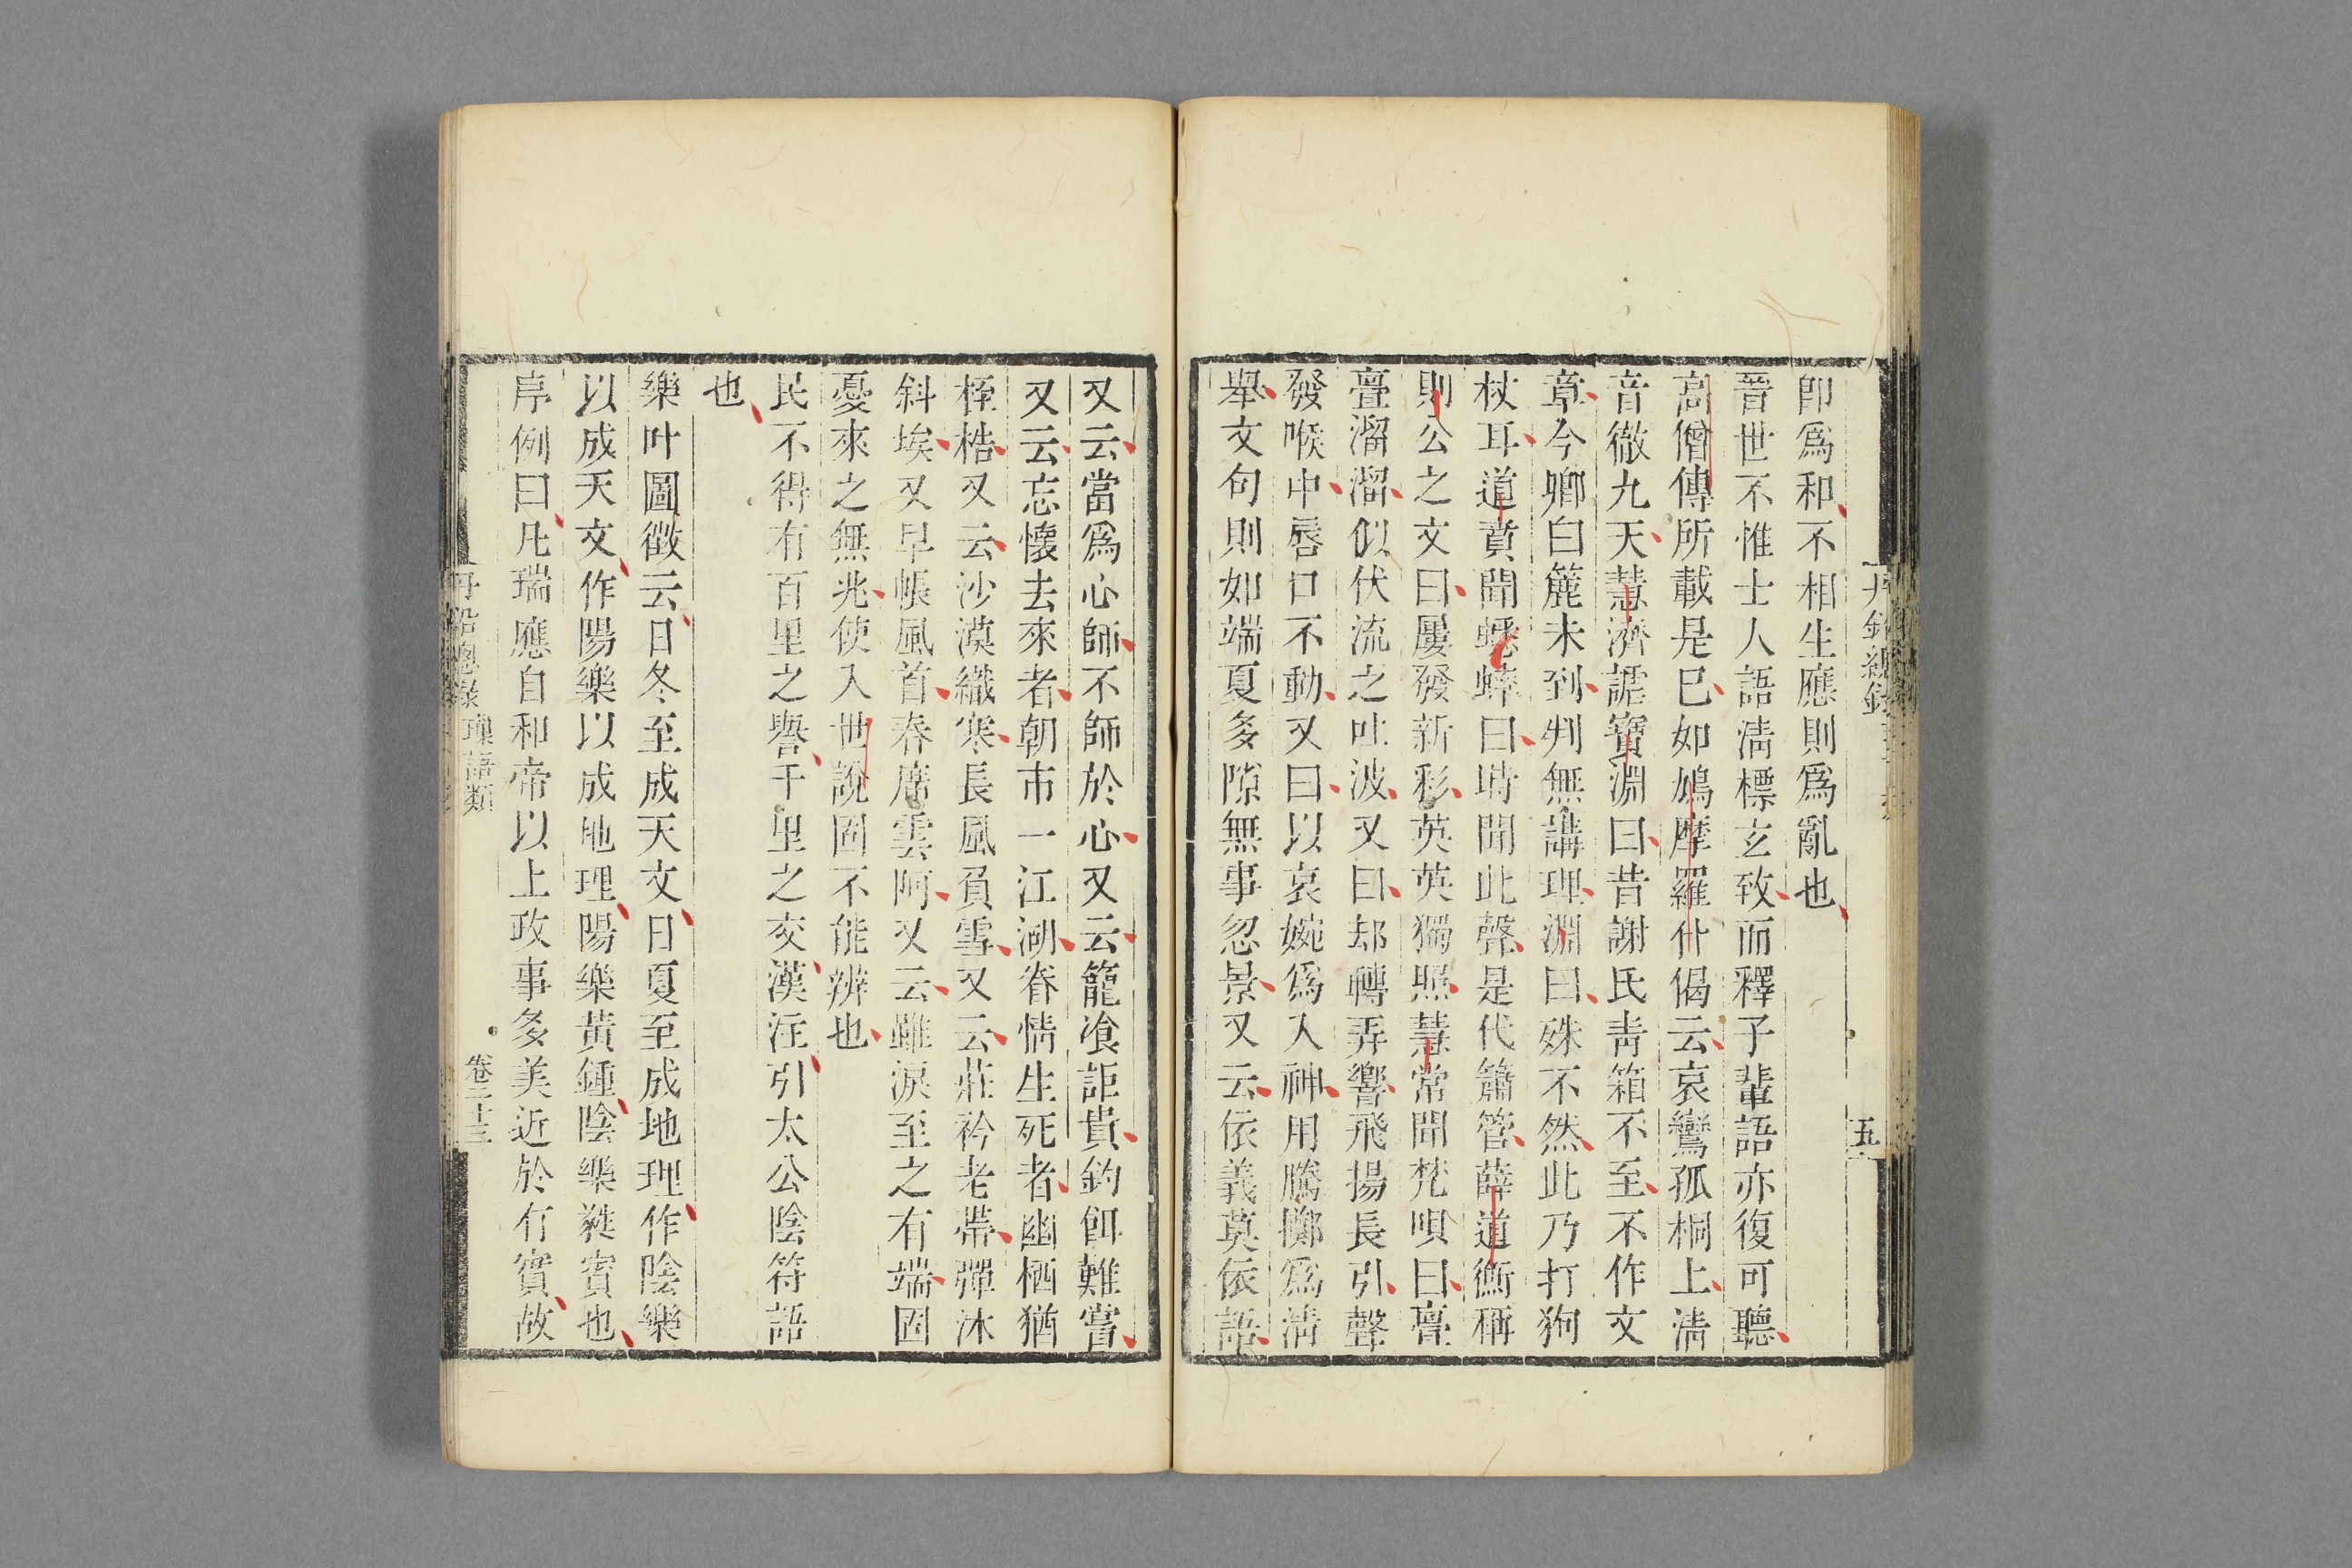 卽爲和不相生應則爲亂也
晉世不惟士人語淸標玄致而釋子輩語亦復可聽
高僧傳所載是已如鳩摩羅什偈云哀鸞孤桐上淸
音徹九天慧濟謔寶淵曰昔謝氏靑箱不至不作文
章今卿白簏未到判無講理淵曰殊不然此乃打狗
杖耳道賁聞蟋蟀曰時聞此聲是代簫管薛道衡稱
則公之文曰屢發新彩英英獨照慧常聞梵唄曰亹
亹溜溜似伏流之吐波又曰却轉弄響飛揚長引聲
發喉中唇口不動又曰以哀婉爲入神用騰擲爲淸
舉文句則如端夏多隙無事忽景又云依義莫依語
又云當爲心師不師於心又云籠飡詎貴釣餌難嘗
又云忘懷去來者朝市一江湖眷情生死者幽栖猶
桎梏又云沙漠織寒長風負雪又云莊衿老帶彈沐
斜埃又旱帳風首春席雲阿又云雖淚至之有端固
憂來之無兆使入世說固不能辨也
民不得有百里之譽千里之交漢注引太公陰符語
也
樂叶圖徵云日冬至成天文日夏至成地理作陰樂
以成天文作陽樂以成地理陽樂黃鍾陰樂蕤賓也
序例曰凡瑞應自和帝以上政事多美近於有實故
丹鉛總錄
瑣語類
卷二十三
五